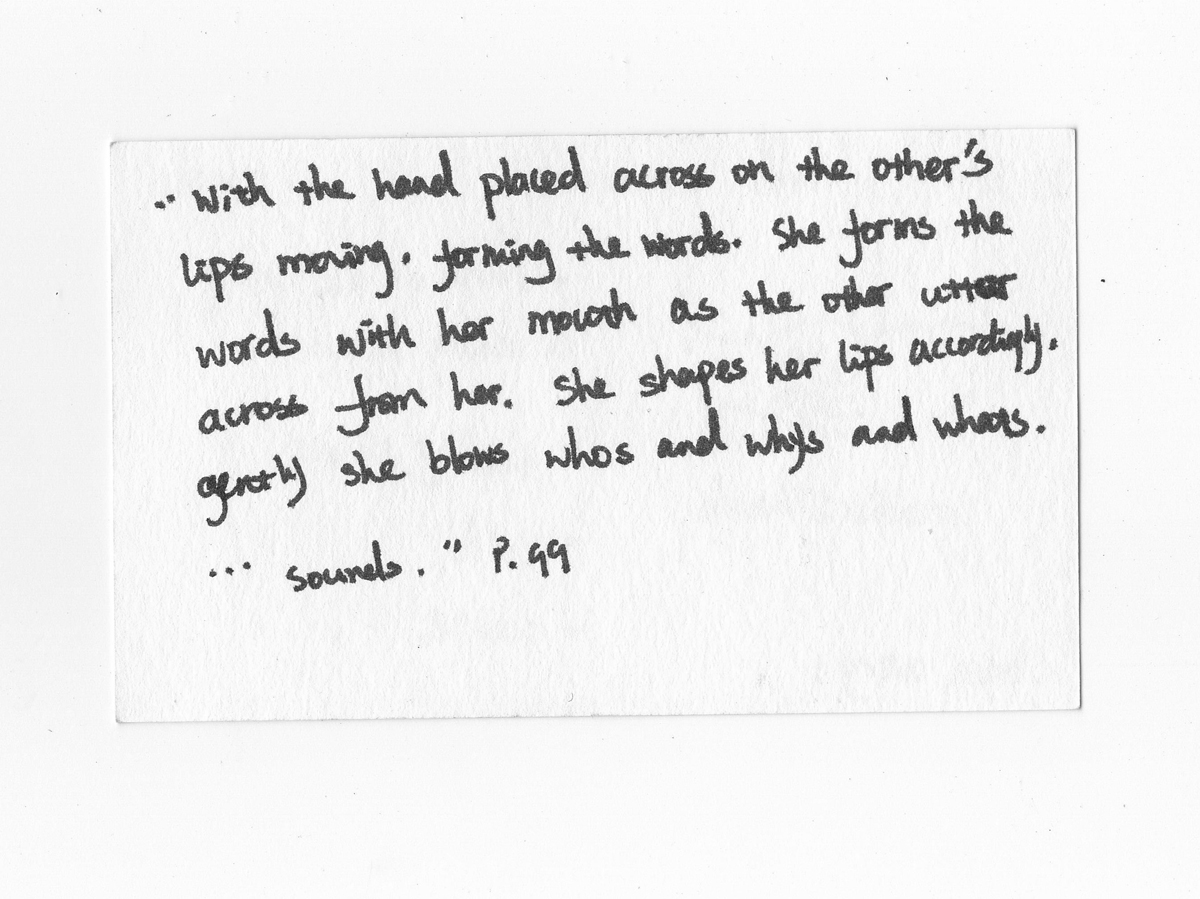 "With the hand placed across on the other's
lips moving, forming the words. She forms the
words with her mouth as the other utter
across from her. She shapes her lips accordingly,
gently she blows whos and whys and whats.
... sounds." P.99